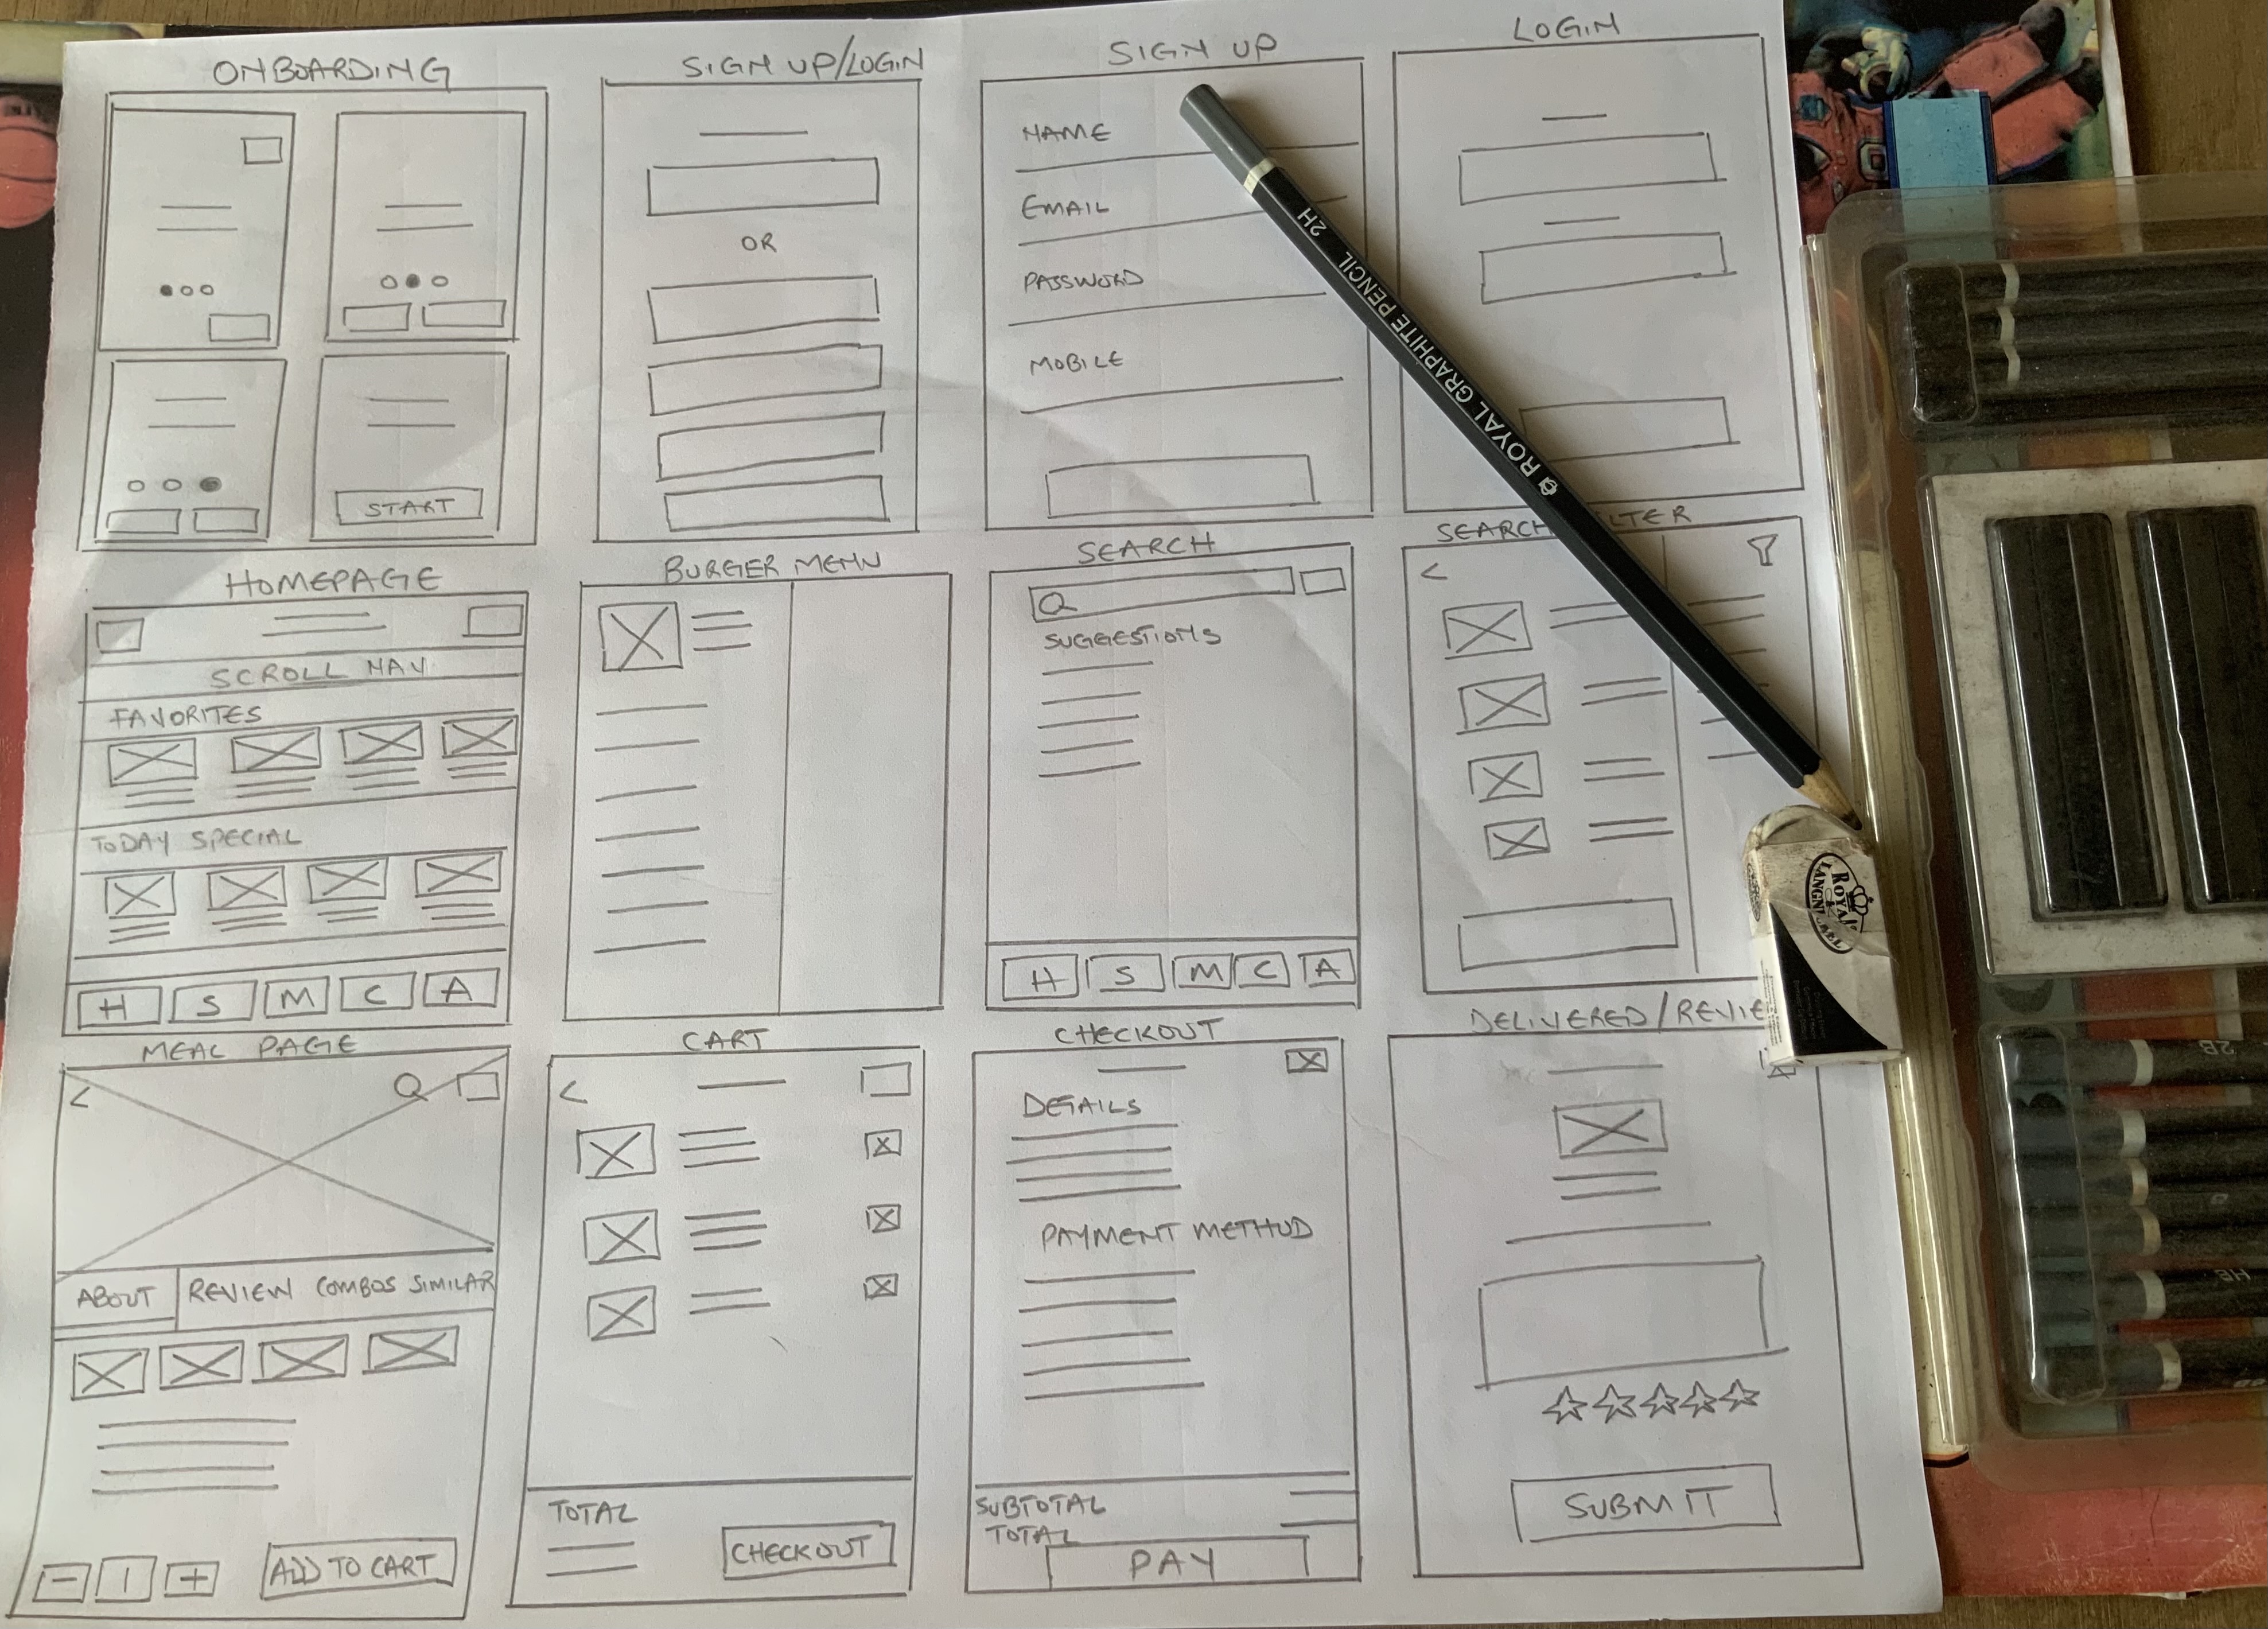 ONBOARDING
START
SIGN UP/LOGIN
OR
SIGN UP
NAME
EMAIL
PASSWORD
MOBILE
LOGIN
2H ROYAL GRAPHITE PENCIL
HOMEPAGE
SCROLL NAV
FAVORITES
TODAY SPECIAL
H S M C A
BURGER MENU
SEARCH
SUGGESTIONS
H S M C A
SEARCH
MEAL PAGE
ABOUT REVIEW COMBOS SIMILAR
- 1 +
ADD TO CART
CART
TOTAL
CHECKOUT
CHECKOUT
DETAILS
PAYMENT METHOD
SUBTOTAL
TOTAL
PAY
DELIVERED/REVIE
SUBMIT
ROYAL
2B
B
HB